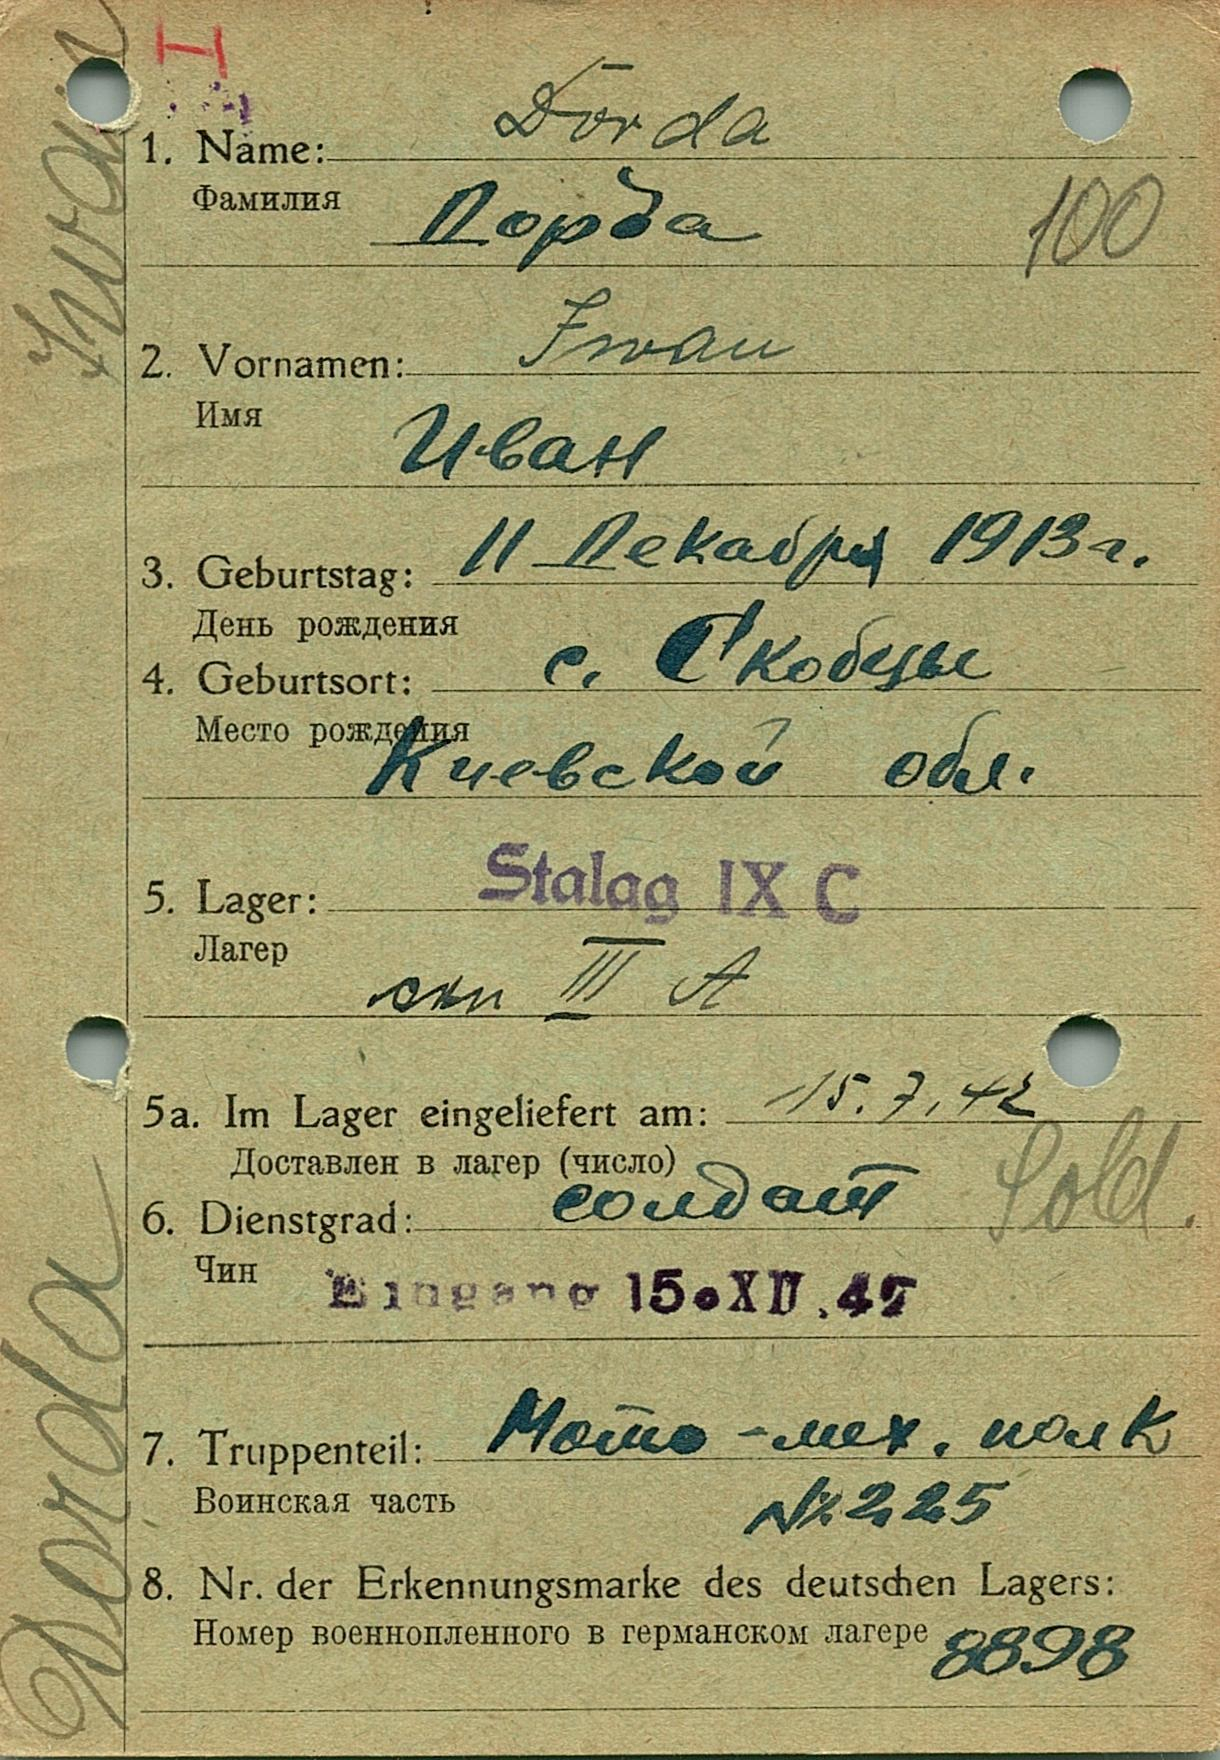 I
Dorda Iwan
1. Name: Dorda
Фамилия Дорда
100
2. Vornamen: Iwan
Имя Иван
3. Geburtstag: 11 Декабря 1913 г.
День рождения
4. Geburtsort: с. Скобцы
Место рождения Киевской обл.
5. Lager: Stalag IX C
Лагер III A
5a. Im Lager eingeliefert am: 15.7.42
Доставлен в лагер (число)
6. Dienstgrad: солдат Sold.
Чин Eingang 15. XII. 42
7. Truppenteil: Мото-мех. полк
Воинская часть № 225
8. Nr. der Erkennungsmarke des deutschen Lagers:
Номер военнопленного в германском лагере 8898